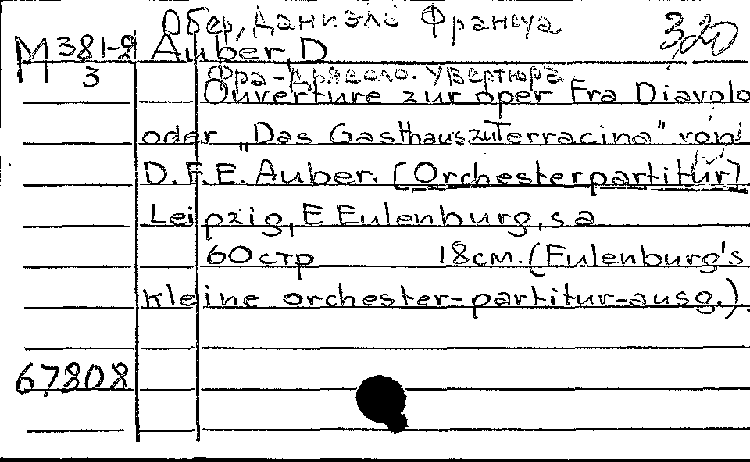 Обер, Даниэль Франсуа
М381-2 Auber, D 3,20
3 Фра-Дьяволо. Увертюра
Ouverture zur oper Fra Diavolo
oder „Das Gasthaus zu Terracina" von
D.F.E. Auber. (Orchesterpartitur)
Leipzig, E Eulenburg, s a
60 стр 18 см. (Eulenburg's
kleine orchester-partitur-ausg.).
67808